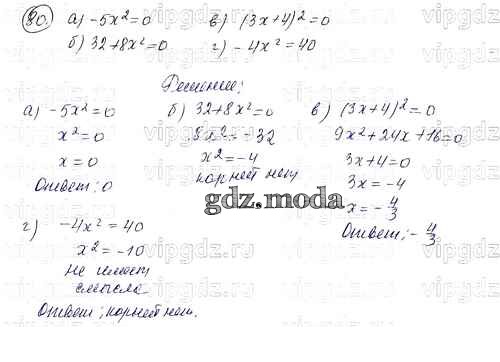 80. а) -5x²=0 в) (3x+4)²=0
б) 32+8x²=0 г) -4x²=40
Решение:
а) -5x²=0
x²=0
x=0
Ответ: 0
б) 32+8x²=0
8x²=-32
x²=-4
корней нет
в) (3x+4)²=0
9x²+24x+16=0
3x+4=0
3x=-4
x=-4/3
Ответ: -4/3
г) -4x²=40
x²=-10
не имеет
смысла
Ответ: корней нет.
gdz.moda
vipgdz.ru